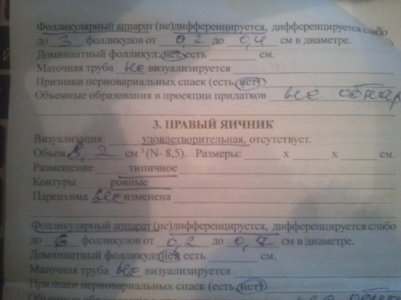 Фолликулярный аппарат (не)дифференцируется, дифференцируется слабо
до 3 фолликулов от 0,2 до 0,4 см в диаметре.
Доминантный фолликул: нет, есть см.
Маточная труба не визуализируется
Признаки периовариальных спаек (есть, нет)
Объемные образования в проекции придатков не обнар
3. ПРАВЫЙ ЯИЧНИК
Визуализация: удовлетворительная, отсутствует.
Объем 8,2 см ³ (N- 8,5). Размеры: х х см.
Размещение типичное
Контуры ровные
Паренхима не изменена
Фолликулярный аппарат (не)дифференцируется, дифференцируется слабо
до 6 фолликулов от 0,2 до 0,7 см в диаметре.
Доминантный фолликул: нет, есть см.
Маточная труба не визуализируется
Признаки периовариальных спаек (есть, нет)